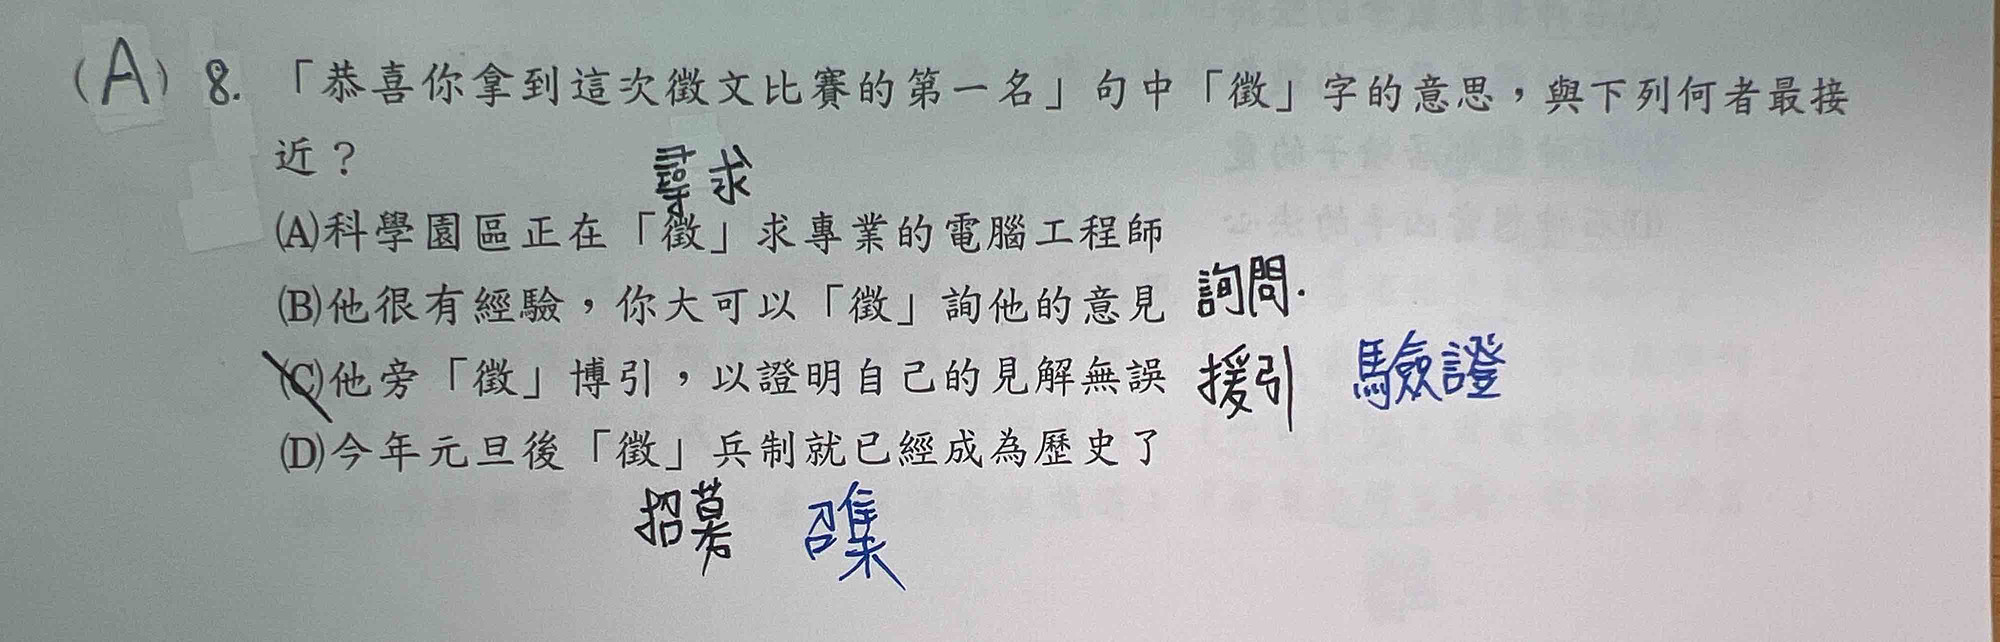 (A) 8. 「恭喜你拿到這次徵文比賽的第一名」句中「徵」字的意思，與下列何者最接
近？
尋求
(A)科學園區正在「徵」求專業的電腦工程師
(B)他很有經驗，你大可以「徵」詢他的意見 詢問.
(C)他旁「徵」博引，以證明自己的見解無誤 援引 驗證
(D)今年元旦後「徵」兵制就已經成為歷史了
招募 召集